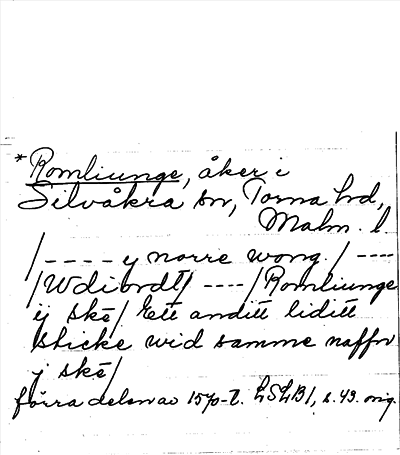 * Romliunge, åker i
Silvåkra sn, Torna hd,
Malm. l.
/---- y norre wong. / ----
/Wdi ordt/ ---- /Romliunge
ij skē/ Ett anditt liditt
sticke wid samme naffn
j skē/
förra delen av 1570-t. LSLB1, s. 49. orig.